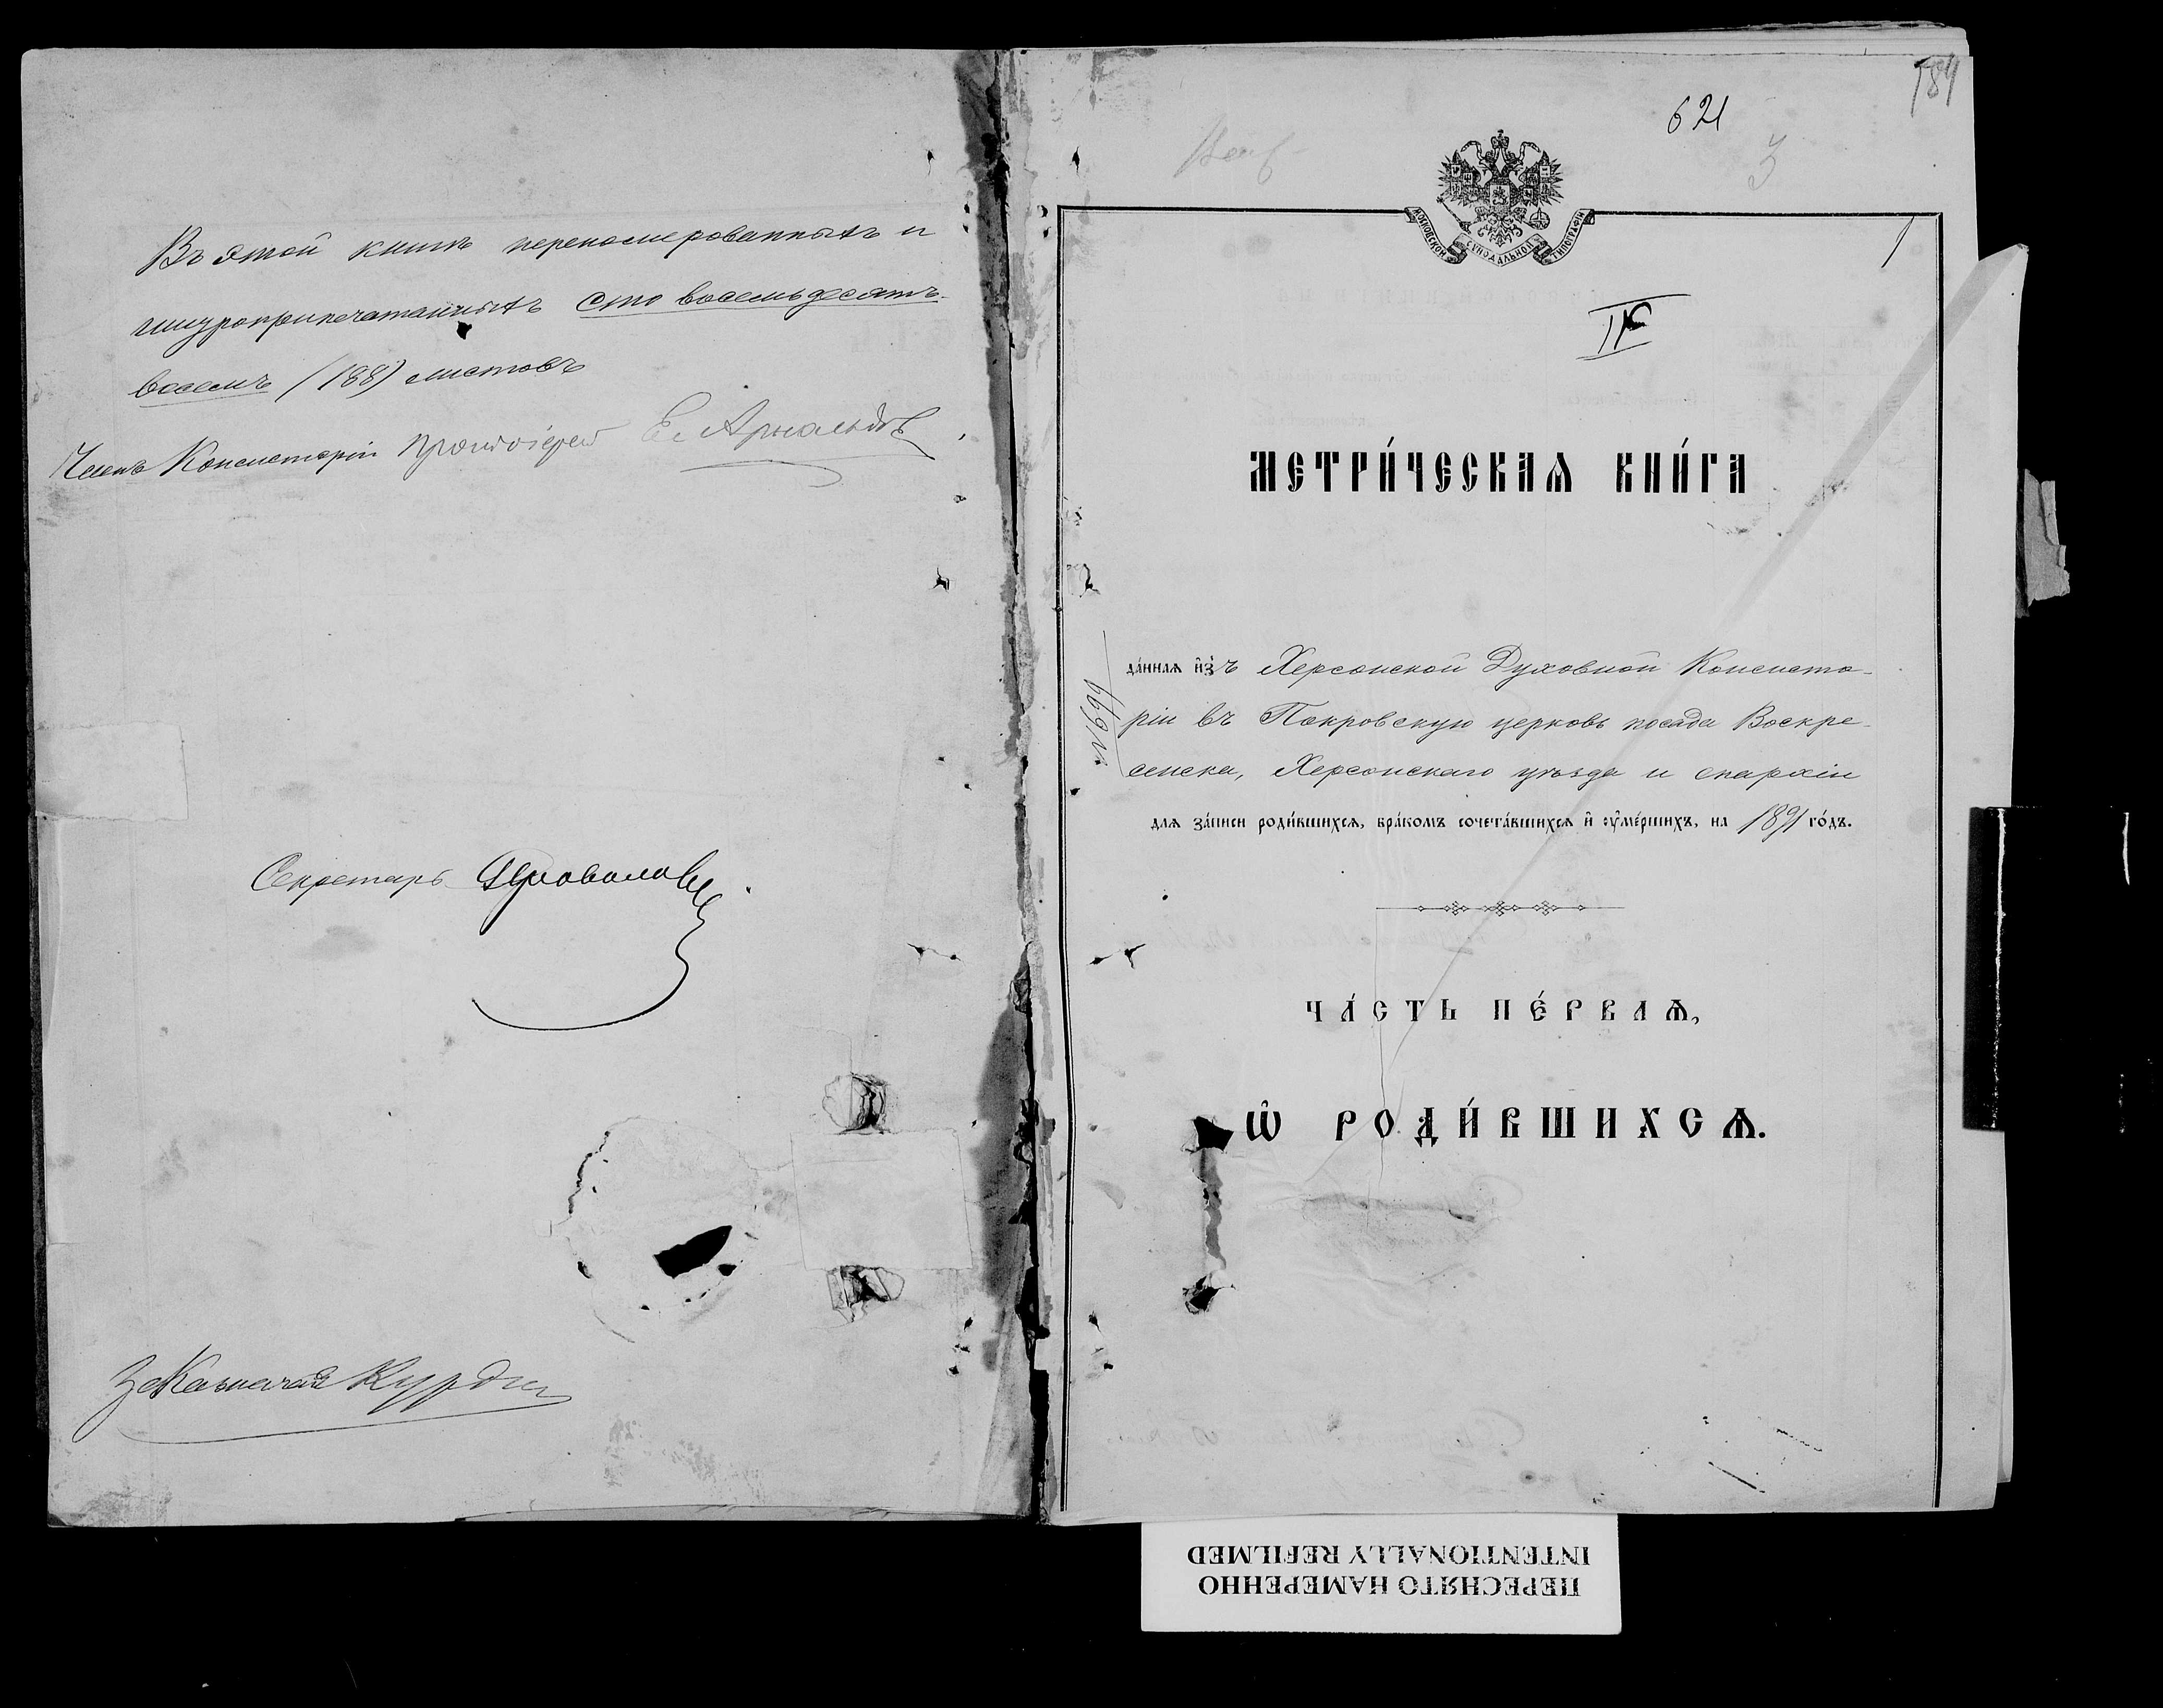 Въ этой книгѣ перенумерованныхъ и
шнуроприпечатанныхъ сто восемьдесятъ
восемь /188/ листовъ
Членъ Консисторіи Протоіерей Е. Арнольдовъ
Секретарь
За Казначея
184
621
3
1
МОСКОВСКОЙ СѴНОДАЛЬНОЙ ТИПОГРАФІИ
МЕТРИ́ЧЕСКАѦ КНИ́ГА
№ 699
да́ннаѧ и҆́зъ Херсонской Духовной Консисто-
ріи въ Покровскую церковь посада Воскре-
сенска, Херсонскаго уѣзда и епархіи
длѧ за́писи роди́вшихсѧ, бра́комъ сочета́вшихсѧ и҆ ᲂу҆ме́ршихъ, на 1891 го́дъ.
ЧА́СТЬ ПЕ́РВАѦ,
Ѡ҆ РОДИ́ВШИХСѦ.
ПЕРЕСНЯТО НАМЕРЕННО
INTENTIONALLY REFILMED